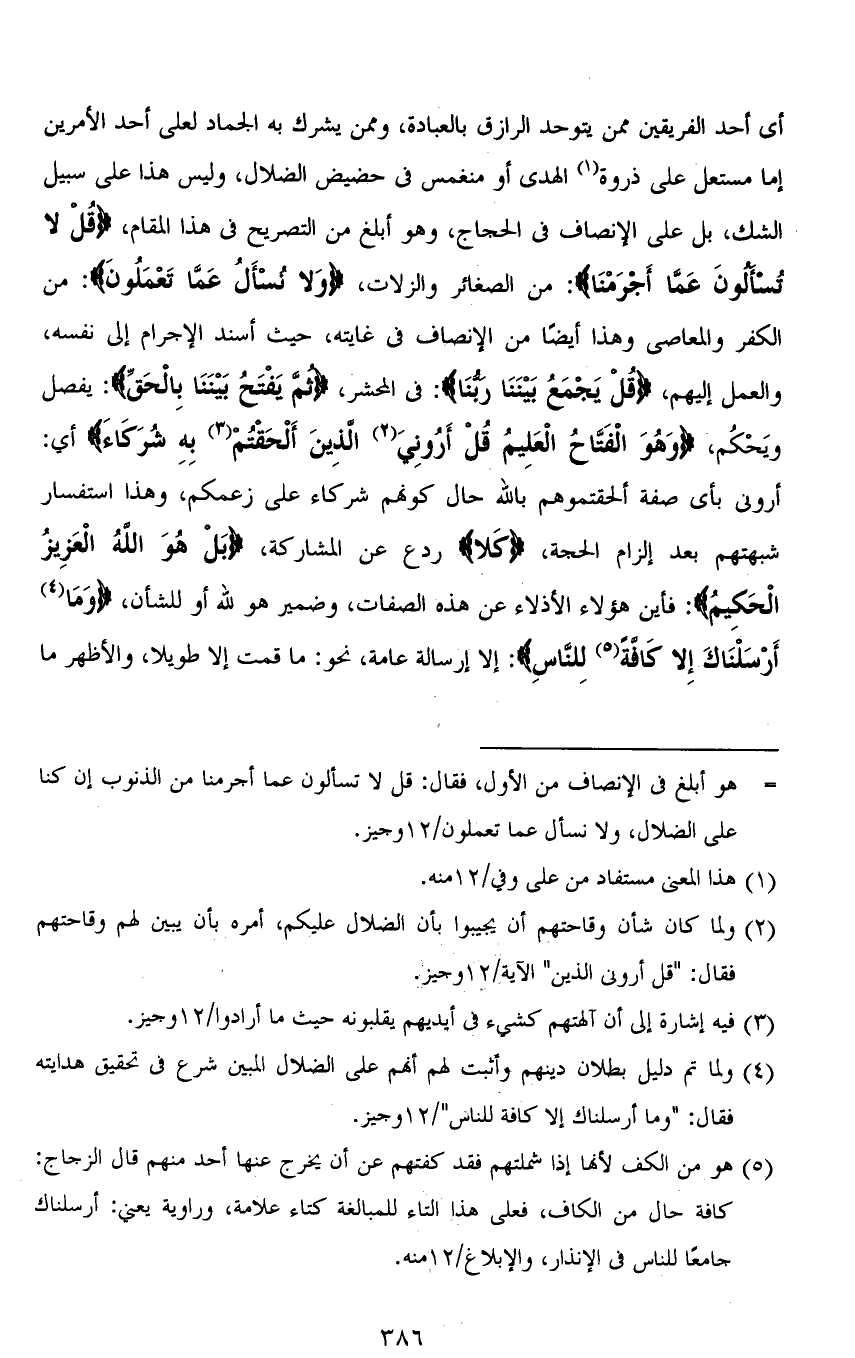 أى أحد الفريقين ممن يتوحد الرازق بالعبادة، وممن يشرك به الجماد لعلى أحد الأمرين
إما مستعل على ذروة(١) الهدى أو منغمس فى حضيض الضلال، وليس هذا على سبيل
الشك، بل على الإنصاف فى الحجاج، وهو أبلغ من التصريح فى هذا المقام، ﴿قُلْ لا
تُسْأَلُونَ عَمَّا أَجْرَمْنَا﴾: من الصغائر والزلات، ﴿وَلا نُسْأَلُ عَمَّا تَعْمَلُونَ﴾: من
الكفر والمعاصى وهذا أيضًا من الإنصاف فى غايته، حيث أسند الإجرام إلى نفسه،
والعمل إليهم، ﴿قُلْ يَجْمَعُ بَيْنَنَا رَبُّنَا﴾: فى المحشر، ﴿ثُمَّ يَفْتَحُ بَيْنَنَا بِالْحَقِّ﴾: يفصل
ويَحْكُم، ﴿وَهُوَ الْفَتَّاحُ الْعَلِيمُ قُلْ أَرُونِيَ(٢) الَّذِينَ أَلْحَقْتُمْ(٣) بِهِ شُرَكَاءَ﴾ أي:
أرونى بأى صفة ألحقتموهم بالله حال كونهم شركاء على زعمكم، وهذا استفسار
شبهتهم بعد إلزام الحجة، ﴿كَلا﴾ ردع عن المشاركة، ﴿بَلْ هُوَ اللَّهُ الْعَزِيزُ
الْحَكِيمُ﴾: فأين هؤلاء الأذلاء عن هذه الصفات، وضمير هو لله أو للشأن، ﴿وَمَا(٤)
أَرْسَلْنَاكَ إِلا كَافَّةً(٥) لِلنَّاسِ﴾: إلا إرسالة عامة، نحو: ما قمت إلا طويلا، والأظهر ما
= هو أبلغ فى الإنصاف من الأول، فقال: قل لا تسألون عما أجرمنا من الذنوب إن كنا
على الضلال، ولا نسأل عما تعملون/١٢وجيز.
(١) هذا المعنى مستفاد من على وفي/١٢منه.
(٢) ولما كان شأن وقاحتهم أن يجيبوا بأن الضلال عليكم، أمره بأن يبين لهم وقاحتهم
فقال: "قل أرونى الذين" الآية/١٢وجيز.
(٣) فيه إشارة إلى أن آلهتهم كشيء فى أيديهم يقلبونه حيث ما أرادوا/١٢وجيز.
(٤) ولما تم دليل بطلان دينهم وأثبت لهم أنهم على الضلال المبين شرع فى تحقيق هدايته
فقال: "وما أرسلناك إلا كافة للناس"/١٢وجيز.
(٥) هو من الكف لأنها إذا شملتهم فقد كفتهم عن أن يخرج عنها أحد منهم قال الزجاج:
كافة حال من الكاف، فعلى هذا التاء للمبالغة كتاء علامة، وراوية يعني: أرسلناك
جامعًا للناس فى الإنذار، والإبلاغ/١٢منه.
٣٨٦